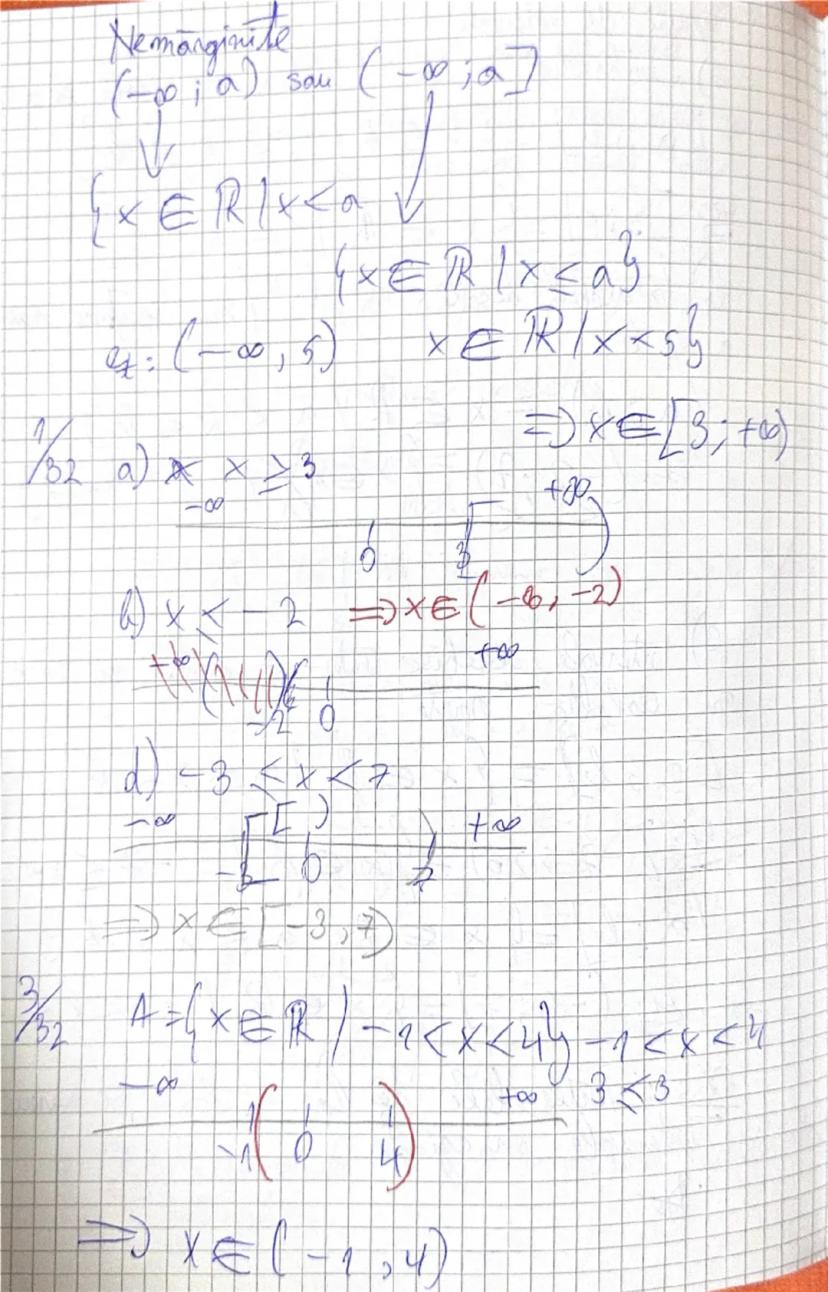 Nemărginite
(-∞ ; a) sau (-∞ ; a]
{x ∈ ℝ | x < a
{x ∈ ℝ | x ≤ a}
ex: (-∞, 5) x ∈ ℝ | x < 5}
1/32 a) x x ≥ 3 => x ∈ [3 ; +∞)
-∞ +∞
0 3
b) x < -2 => x ∈ (-∞, -2)
+∞ +∞
-2 0
d) -3 ≤ x < 7
-∞ [ ) +∞
-3 0 7
=> x ∈ [-3, 7)
3/32 A = {x ∈ ℝ | -1 < x < 4} -1 < x < 4
-∞ +∞ 3 ≤ 3
-1 0 4
=> x ∈ (-1, 4)